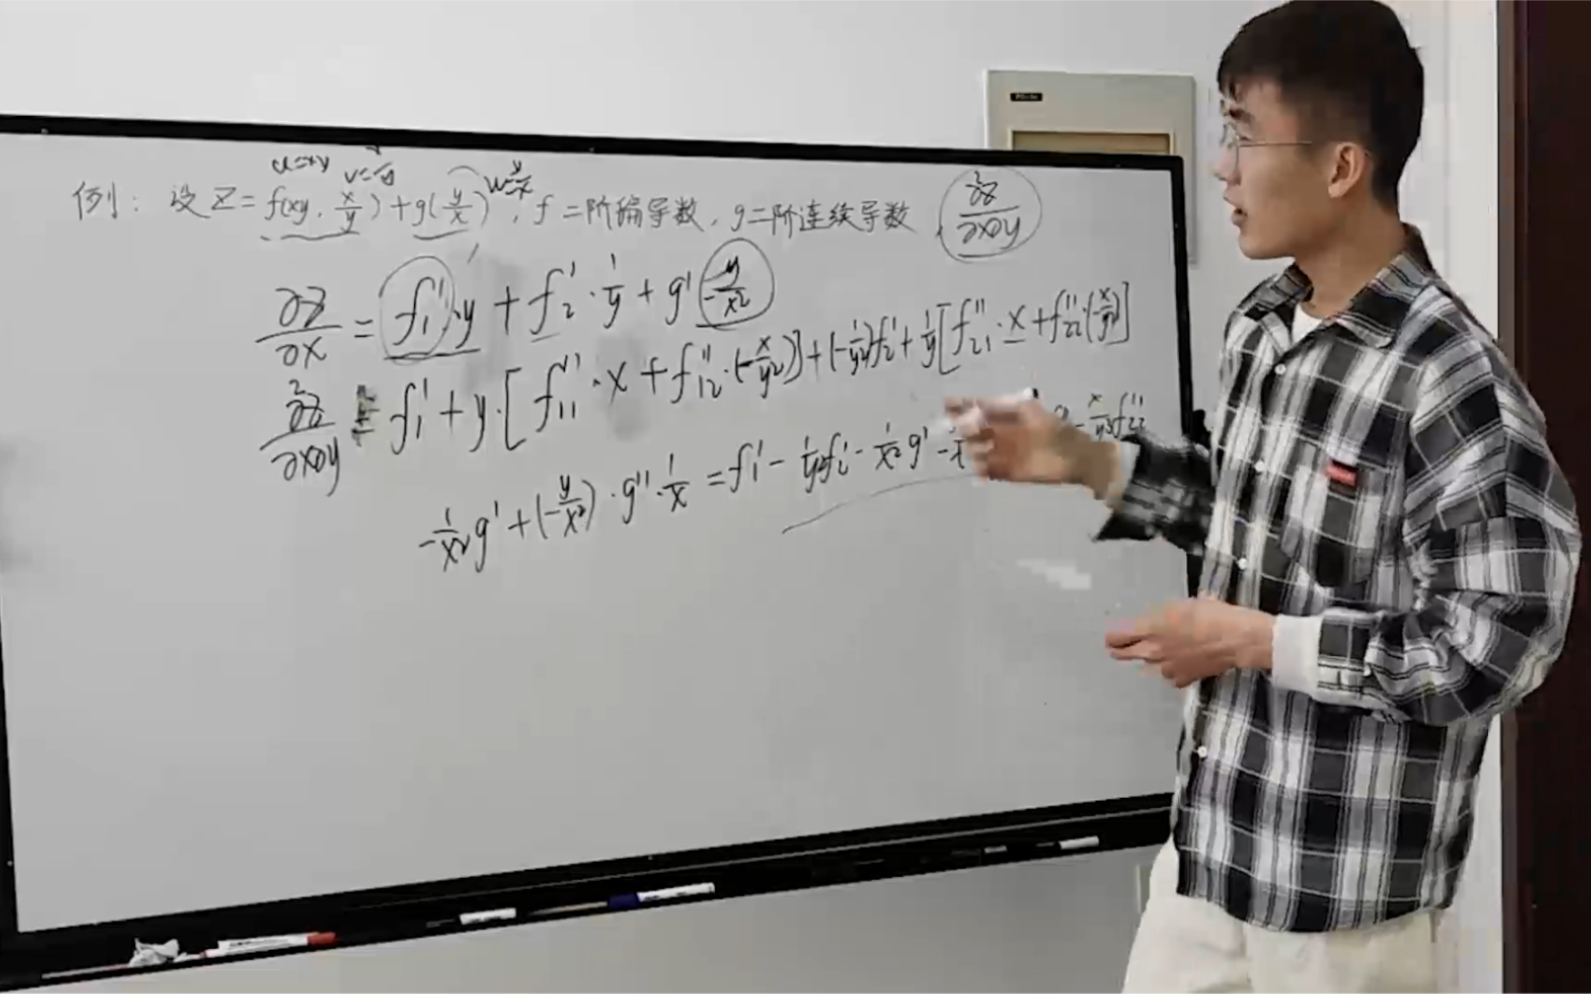 u=xy v=x/y w=y/x
例：设 Z = f(xy, x/y) + g(y/x), f 二阶偏导数, g 二阶连续导数, ∂²z/∂x∂y
∂z/∂x = f₁'·y + f₂'·1/y + g'(-y/x²)
∂²z/∂x∂y = f₁' + y·[f₁₁''·x + f₁₂''·(-x/y²)] + (-1/y²)f₂' + 1/y[f₂₁''·x + f₂₂''·(-x/y²)]
-1/x² g' + (-y/x²)·g''·1/x = f₁' - 1/y² f₂' - 1/x² g' - x/y³ f₂₂''